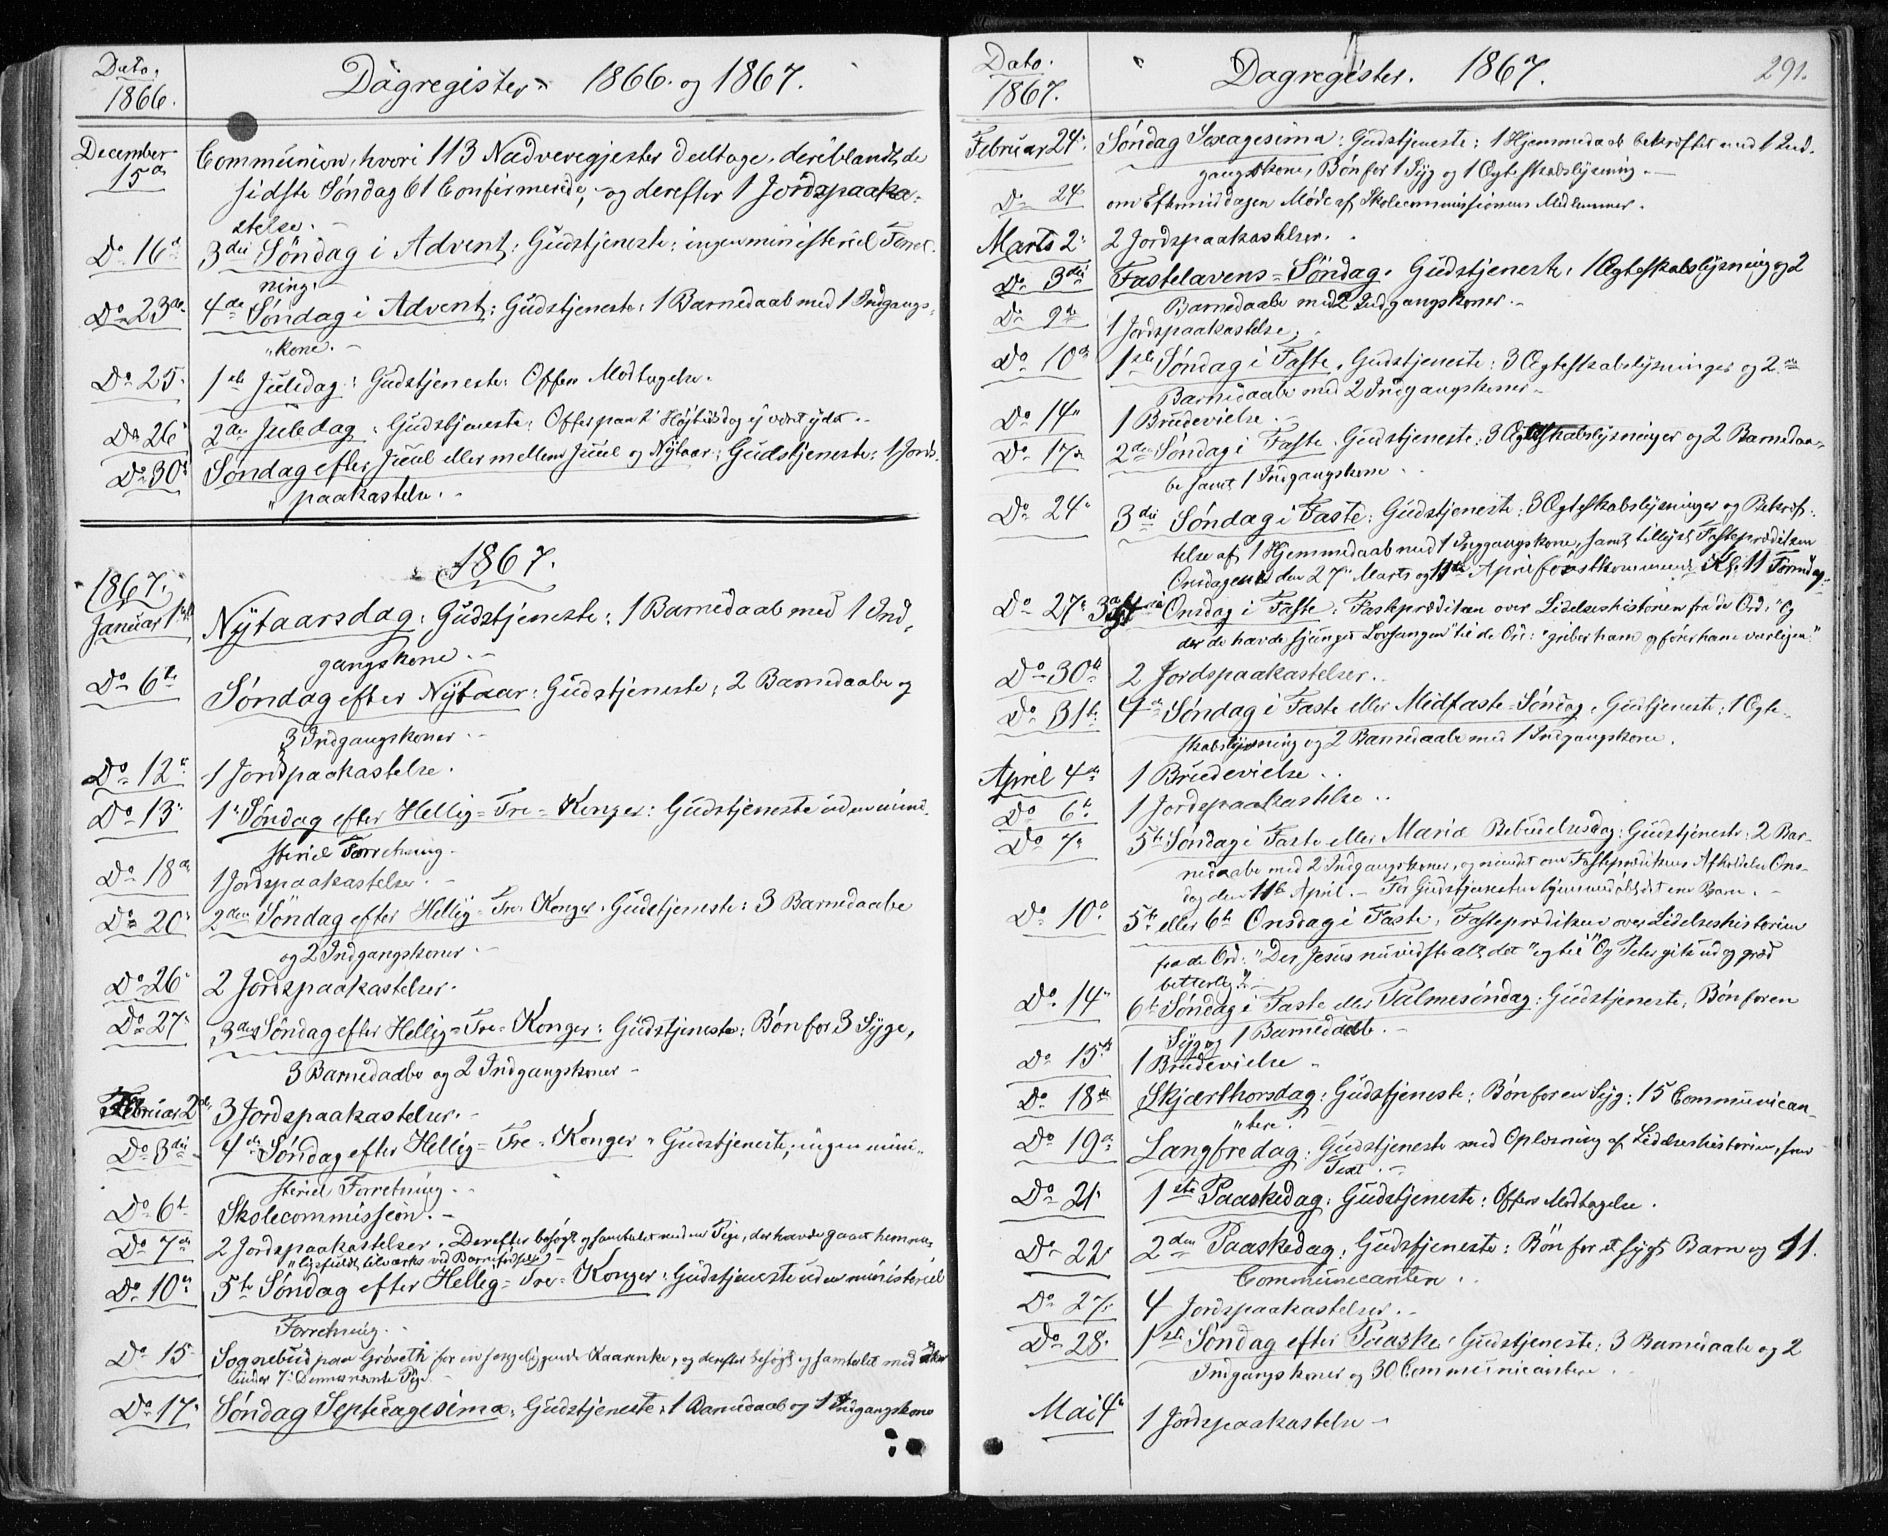 Dato.
1866.
Dagregister 1866. og 1867.
December 15de
Communion, hvori 113 Nadveregjester deeltoge, deriblandt de
sidste Søndag 61 Confirmerede, og derefter 1 Jordspaaka-
stelse.
Do 16de
3die Søndag i Advent: Gudstjeneste: ingen ministeriel Forret-
ning.
Do 23de
4de Søndag i Advent: Gudstjeneste: 1 Barnedaab med 1 Indgangs-
kone.
Do 25.
1ste Juledag: Gudstjeneste: Offer Modtagelse.
Do 26.
2den Juledag: Gudstjeneste: Offer paa 2. Højtidsdag ej været ydet.
Do 30.
Søndag efter Juul eller mellem Juul og Nytaar: Gudstjeneste: 1 Jords-
paakastelse.
1867.
1867.
Januar 1ste
Nytaarsdag: Gudstjeneste: 1 Barnedaab med 1 Ind-
gangskone.
Do 6te
Søndag efter Nytaar: Gudstjeneste: 2 Barnedaabe og
3 Indgangskoner.
Do 12te
1 Jordspaakastelse.
Do 13.
1. Søndag efter Hellig-Tre-Konger: Gudstjeneste uden mini-
steriel Forretning.
Do 18de
1 Jordspaakastelse.
Do 20.
2den Søndag efter Hellig-Tre-Konger: Gudstjeneste: 3 Barnedaabe
og 2 Indgangskoner
Do 26.
2 Jordspaakastelser.
Do 27.
3die Søndag efter Hellig-Tre-Konger: Gudstjeneste: Bøn for 3 Syge,
3 Barnedaabe og 2 Indgangskoner
Februar 2de
3 Jordspaakastelser.
Do 3die
4de Søndag efter Hellig-Tre-Konger. Gudstjeneste, ingen mini-
steriel Forretning.
Do 6te
Skolecommission.
Do 7de
2 Jordspaakastelser. Derefter besøgt og samtalet med en Pige, der havde gaaet hemme-
ligefuldt tilværks ved Barnefødsel
Do 10de
5te Søndag efter Hellig-Tre-Konger: Gudstjeneste uden ministeriel
Forretning.
Do 15.
Sognebud paa Grøseth for en sengeliggende Kaarenke, og derefter besøgt og samtalet med
under 7. Dennes nævnte Pige.
Do 17.
Søndag Septuagesima: Gudstjeneste: 1 Barnedaab og 1 Indgangskone
Dato.
1867.
Dagregister. 1867.
291.
Februar 24.
Søndag Sexagesima: Gudstjeneste: 1 Hjemmedaab bekræftet med 1 Ind-
gangskone, Bøn for 1 Syg og 1 Ægteskabslysning.
Do 24
om Eftermiddagen Møde af Skolecommissionens Medlemmer.
Marts 2.
2 Jordspaakastelser.
Do 3die
Fastelavens-Søndag. Gudstjeneste. 1 Ægteskabslysning og 2
Barnedaabe med 2 Indgangskoner.
Do 9de
1 Jordspaakastelse.
Do 10de
1ste Søndag i Faste. Gudstjeneste: 3 Ægteskabslysninger og 2
Barnedaabe med 2 Indgangskoner
Do 14.
1 Brudevielse.
Do 17.
2den Søndag i Faste. Gudstjeneste: 3 Ægteskabslysninger og 2 Barnedaa-
be samt 1 Indgangskone.
Do 24.
3die Søndag i Faste: Gudstjeneste: 3 Ægteskabslysninger og Bekræf-
telse af 1 Hjemmedaab med 1 Inggangskone, samt tillyst Fasteprædiken
Onsdagene den 27. Marts og 11te April førstkommende Kl. 11 Formdag.
Do 27.
Onsdag i Faste. Fasteprædiken over Lidelseshistorien fra de Ord: "Og
der de havde sjunget Lovsangen" til de Ord: "griber ham og fører ham varligen."
Do 30te
2 Jordspaakastelser.
Do 31te
4de Søndag i Faste eller Midfaste-Søndag. Gudtjeneste: 1 Ægte-
skabslysning og 2 Barnedaabe med 1 Indgangskone.
April 4de
1 Brudevielse.
Do 6te
1 Jordspaakastelse.
Do 7.
5te Søndag i Faste eller Mariæ Bebudelsesdag: Gudstjeneste: 2 Bar-
nedaabe med 2 Indgangskoner, og mindet om Fasteprædikens Afholdelse Ons-
dag den 11te April. For Gudstjenesten hjemmedøbt et Barn.
Do 10.
5te eller 6te Onsdag i Faste. Fasteprædiken over Lidelseshistorien
fra de Ord: "Der Jesus nu vidste alt det" og til "Og Peter gik ud og græd
betterlig".
Do 14.
6te Søndag i Faste eller Palmesøndag: Gudstjeneste. Bøn for en
Syg og 1 Barnedaab.
Do 15te
1 Brudevielse
Do 18de
Skjærthorsdag: Gudstjeneste: Bøn for en Syg: 15 Communican-
tere.
Do 19de
Langfredag: Gudstjeneste med Oplæsning af Lidelseshistorien, som
Text.
Do 21.
1ste Paaskedag: Gudstjeneste: Offers Modtagelse.
Do 22.
2den Paaskedag: Gudstjeneste: Bøn for et sygt Barn og 11.
Communicantere.
Do 27.
4 Jordspaakastelser.
Do 28.
1ste Søndag efter Paaske: Gudstjeneste: 3 Barnedaabe og 2
Indgangskoner og 30 Communicantere.
Mai 4.
1 Jordspaakastelse